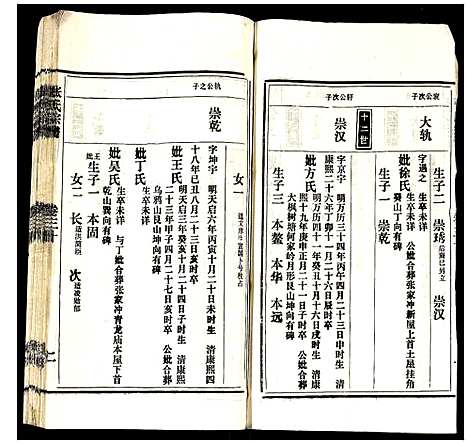 哀公次子
大轨
字遇之
生卒未详
妣徐氏
生卒未详 公妣合葬张家冲新屋上首土屋挂角
癸山丁向有碑
生子二 崇琇 后裔已另立 崇汉
生子一 崇乾
十二世
轩公次子
崇汉
字京宇
明万历三十四年丙午四月二十三日申时生 清
康熙二十六年丁卯十一月二十八日亥时卒
妣方氏
明万历四十一年癸丑十月十六日戌时生 清康
熙十九年庚申正月二十一日亥时卒 公妣合葬
大枫树塘何家岭月形艮山坤向有碑
生子三 本鳌 本华 本远
女一
轨公之子
崇乾
字坤宇
明天启六年丙寅十月二十日未时生 清康熙四
十八年己丑八月二十三日亥时卒
妣王氏
明天启三年癸亥十月二十四日子时生 清康熙
二十三年甲子四月二十七日亥时卒 公妣合葬
乌鸦山艮山坤向有碑
妣丁氏
生卒未详
妣吴氏
生卒未详 与丁妣合葬张家冲青龙庙本屋下首
乾山巽向有碑
王妣
生子一 本固
女二 长 适洪简候 次 适凌勉郁
张氏宗谱
卷三十册